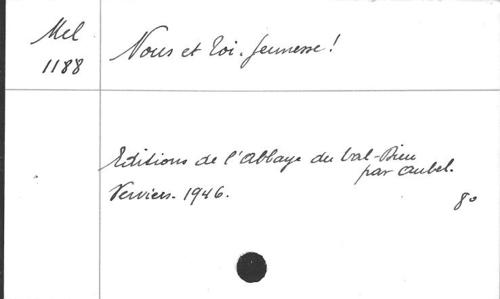 Mel
1188
Nous et Toi. Jeunesse!
Editions de l'Abbaye du Val-Dieu
par Aubel.
Verviers. 1946.
8º